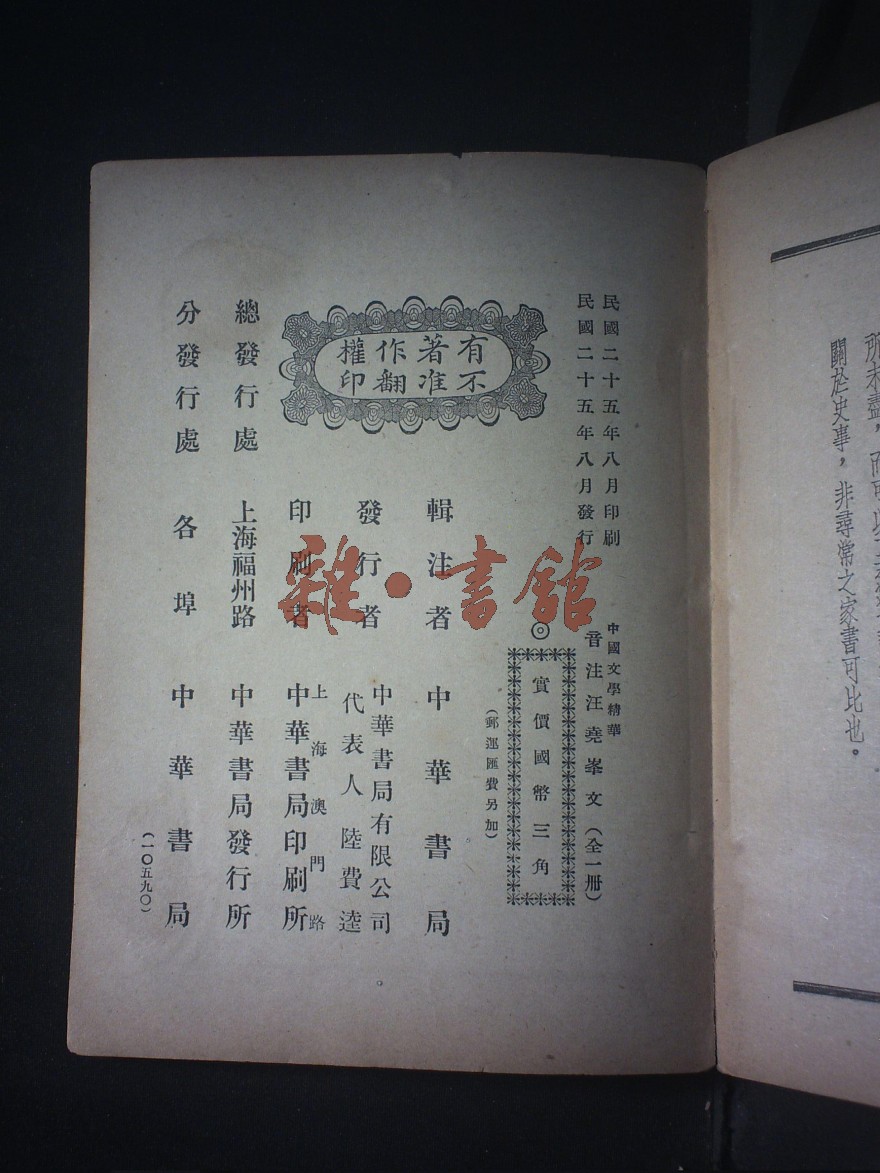 關於史事，非尋常之家書可比也。
民國二十五年八月印刷
民國二十五年八月發行
中國文學精華
音注汪堯峯文（全一册）
◎實價國幣三角
（郵運匯費另加）
有著作權
不准翻印
輯注者 中華書局
發行者 中華書局有限公司
代表人 陸費逵
印刷者 上海澳門路
中華書局印刷所
總發行處 上海福州路 中華書局發行所
分發行處 各埠 中華書局
（一〇五九〇）
雜·書館